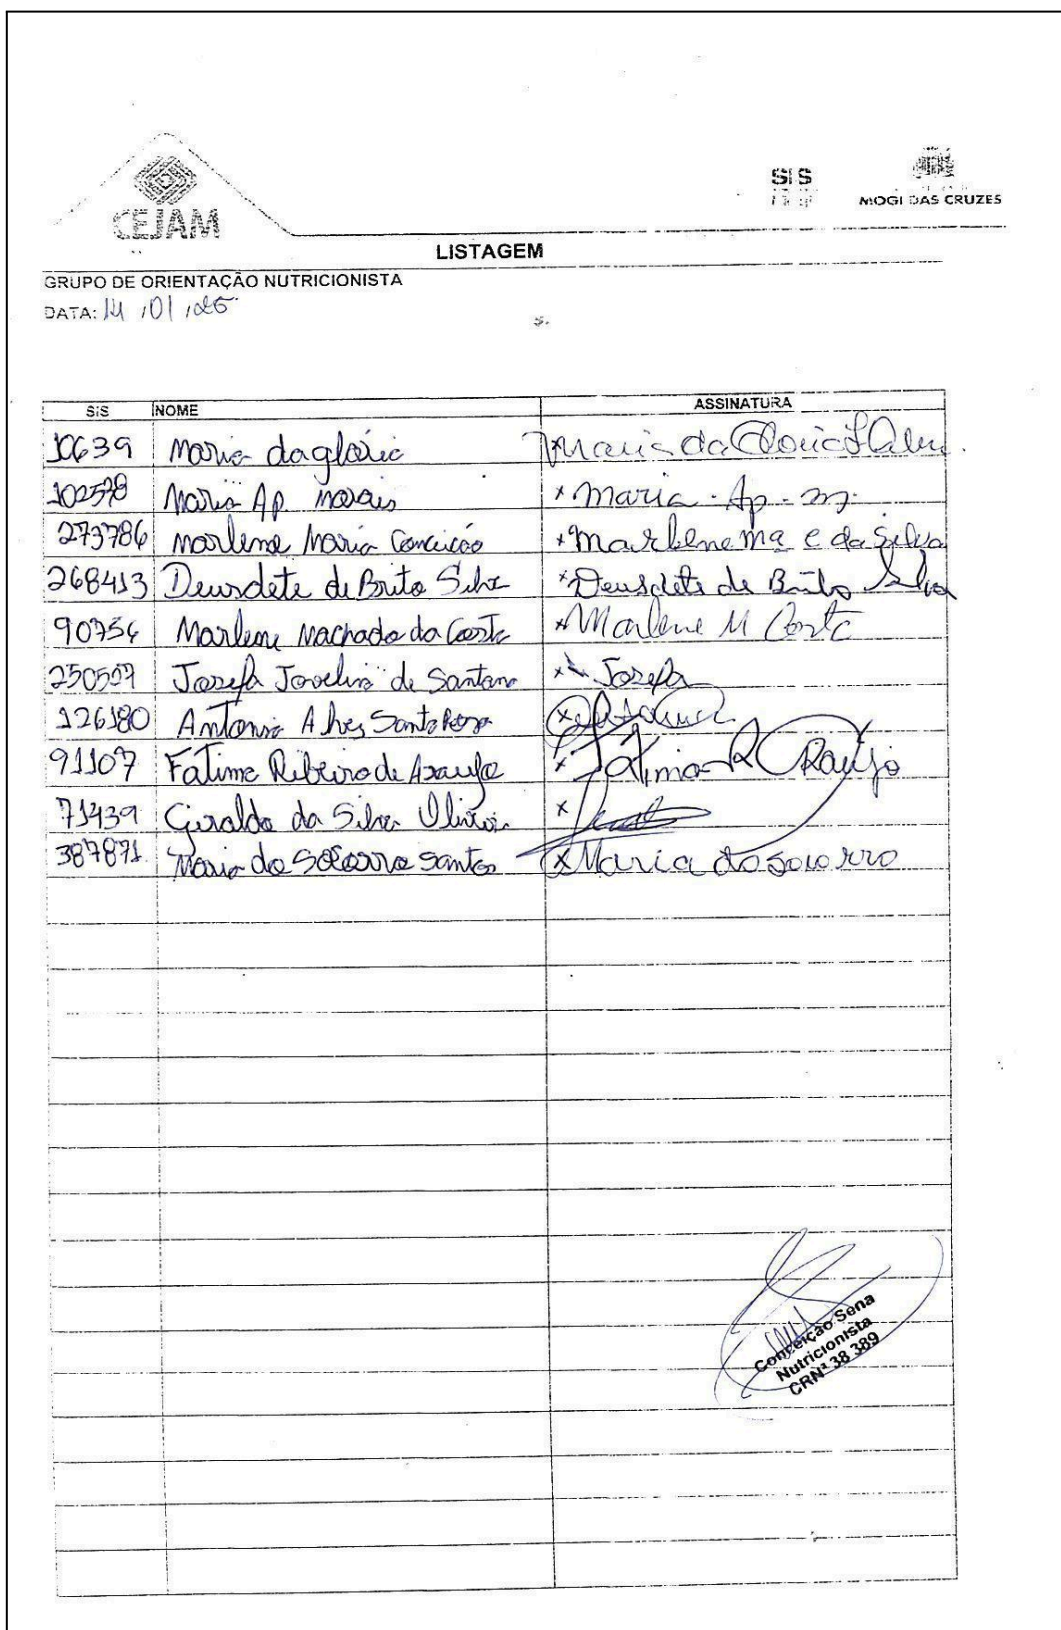 CEJAM
SIS
MOGI DAS CRUZES
LISTAGEM
GRUPO DE ORIENTAÇÃO NUTRICIONISTA
DATA: 14 /01 /25
SIS NOME ASSINATURA
10639 Maria da glória Maria da Gloria
102578 Maria Ap. Morais x Maria - Ap - m
273786 Marlene Maria Conceição x Marlene Mª C da Silva
268413 Deusdete de Brito Silva x Deusdete de Brito Silva
90754 Marlene Machado da Costa x Marlene M Costa
250597 Josefa Jovelina de Santana x Josefa
126180 Antonio Alves Santa Rosa x
91107 Fatima Ribeiro de Araujo x Fatima R Araujo
71439 Geraldo da Silva x
387871 Maria do Socorro Santos x Maria do Socorro
Conceição Sena
Nutricionista
CRNª 38 389